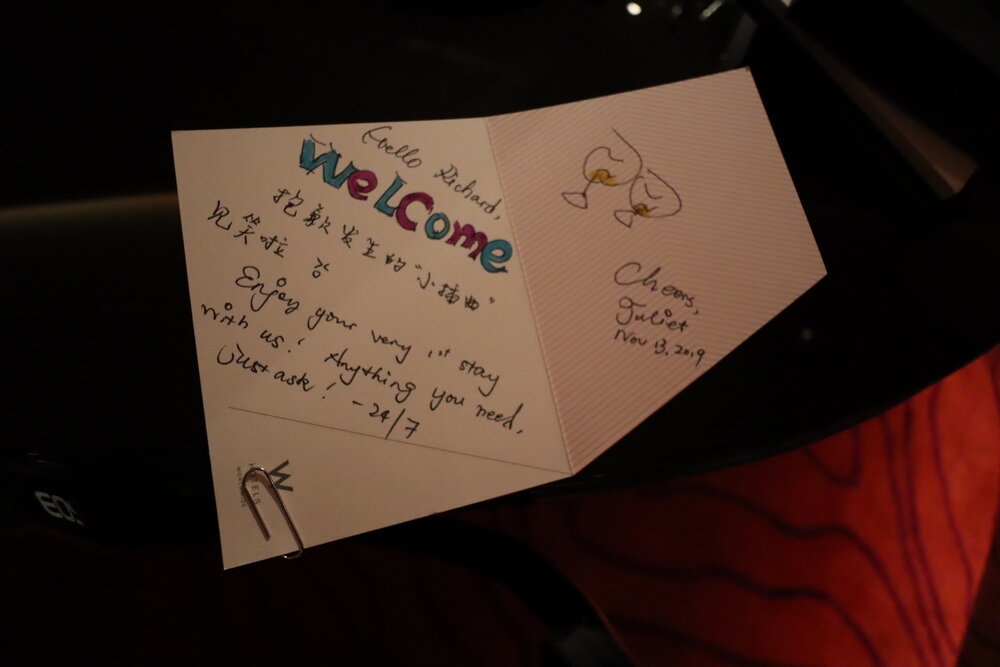 Hello Richard,
WeLCome
抱歉发生的“小插曲”
见笑啦
Enjoy your very 1st stay
with us! Anything you need,
Just ask! - 24/7
W
HOTELS
Cheers,
Juliet
Nov 13, 2019